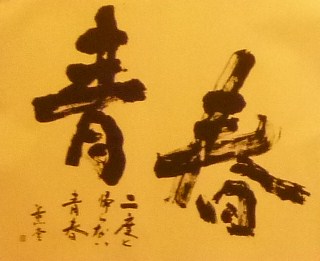 青春
二度と
帰らない
青春